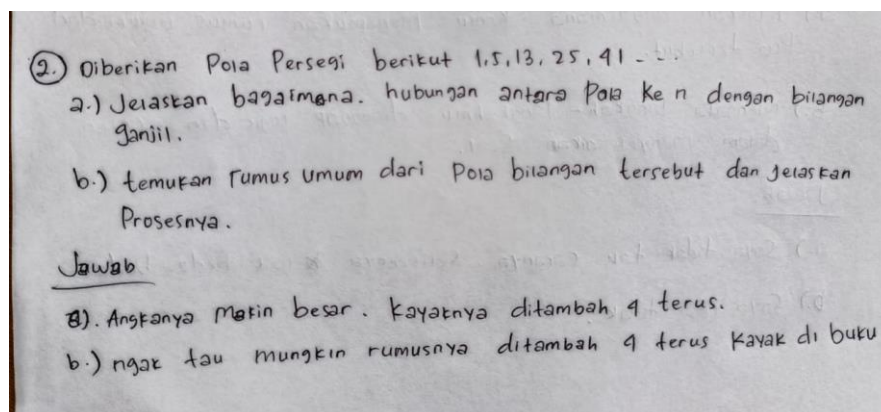 2.) Diberikan Pola Persegi berikut 1,5,13,25,41 - - .
a.) Jelaskan bagaimana. hubungan antara Pola ke n dengan bilangan
ganjil.
b.) temukan rumus umum dari Pola bilangan tersebut dan jelaskan
Prosesnya.
Jawab
a). Angkanya makin besar. kayaknya ditambah 4 terus.
b.) ngak tau mungkin rumusnya ditambah 4 terus kayak di buku